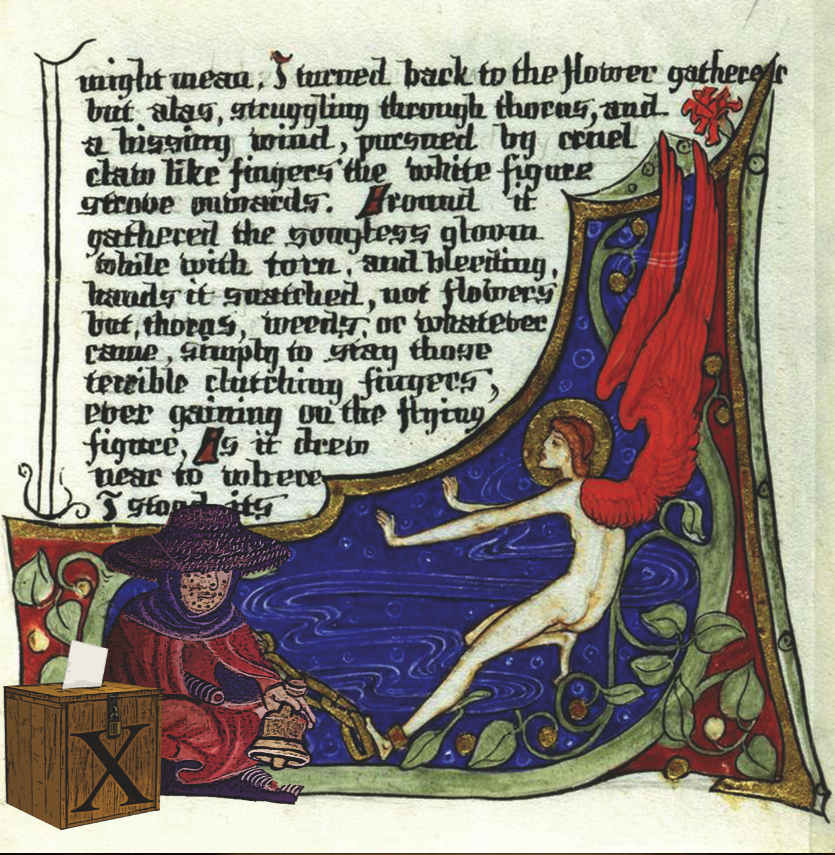 might mean, I turned back to the flower gatherer
but alas, struggling through thorns, and
a hissing wind, pursued by cruel
claw like fingers the white figure
strove onwards. Around it
gathered the songless gloom
while with torn, and bleeding,
hands it snatched, not flowers
but, thorns, weeds, or whatever
came, simply to stay those
terrible clutching fingers,
ever gaining on the flying
figure, As it drew
near to where
I stood its
X